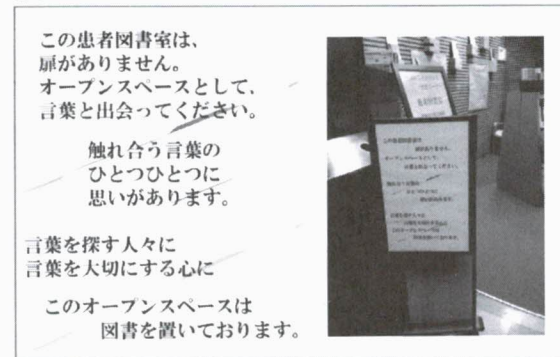 この患者図書室は、
扉がありません。
オープンスペースとして、
言葉と出会ってください。
触れ合う言葉の
ひとつひとつに
思いがあります。
言葉を探す人々に
言葉を大切にする心に
このオープンスペースは
図書を置いております。